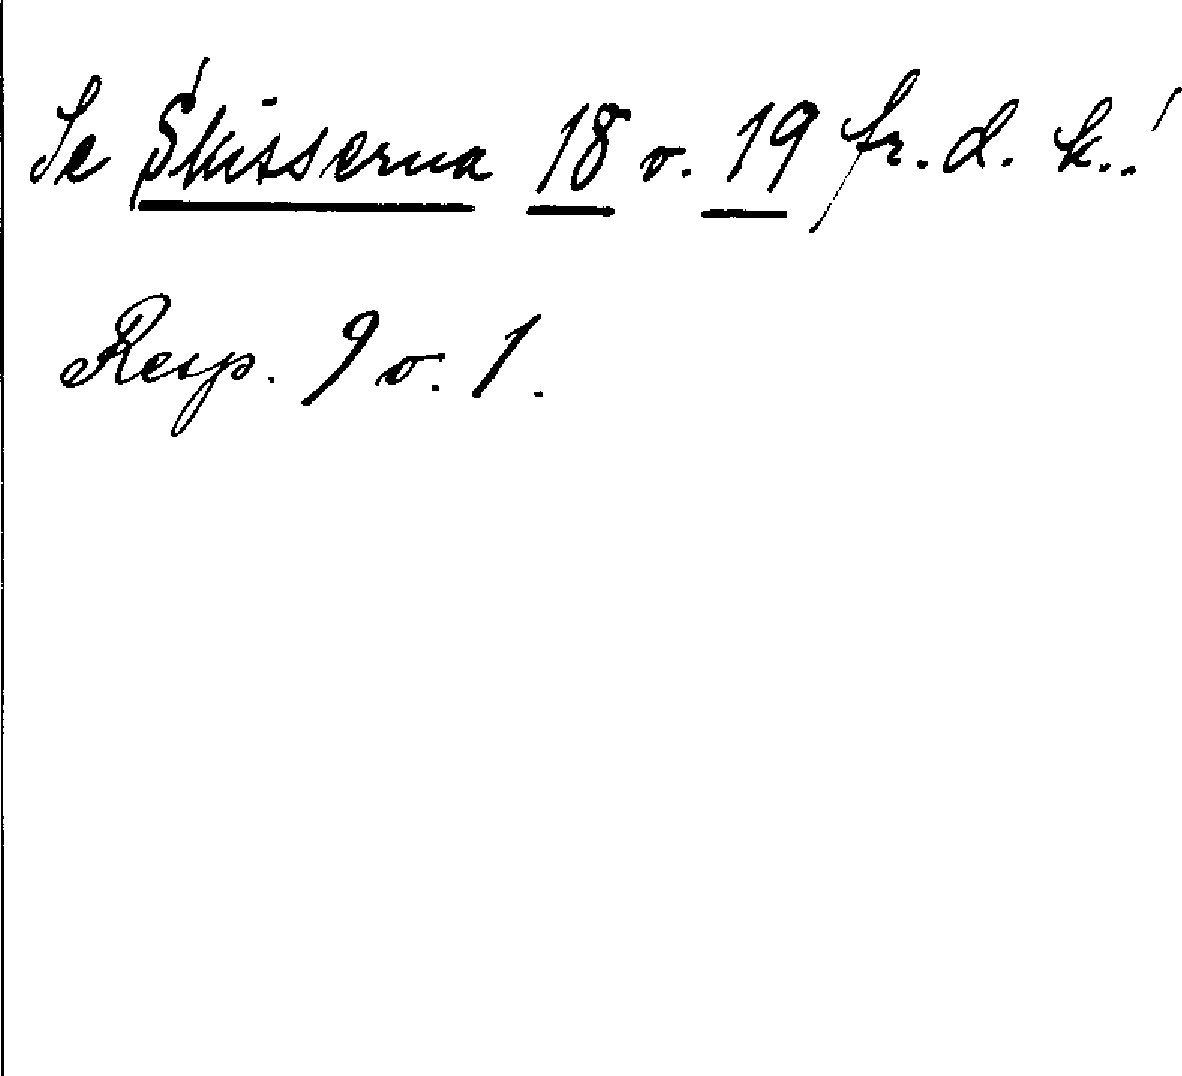 Se Skisserna 18 o. 19 fr. d. k..!
Resp. 9 o. 1.